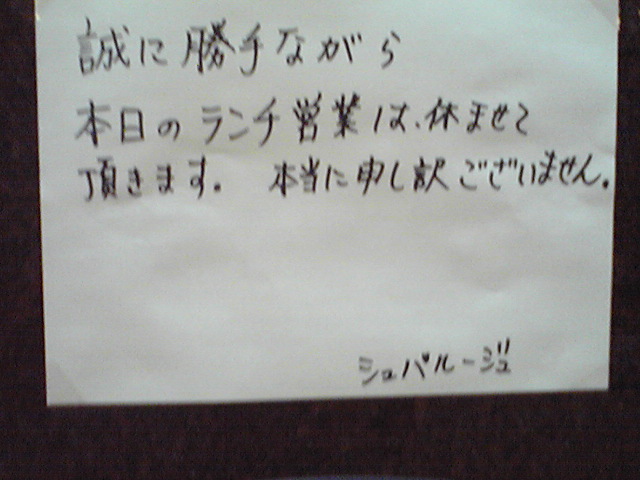 誠に勝手ながら
本日のランチ営業は、休ませて
頂きます。 本当に申し訳ございません。
シュバルージュ